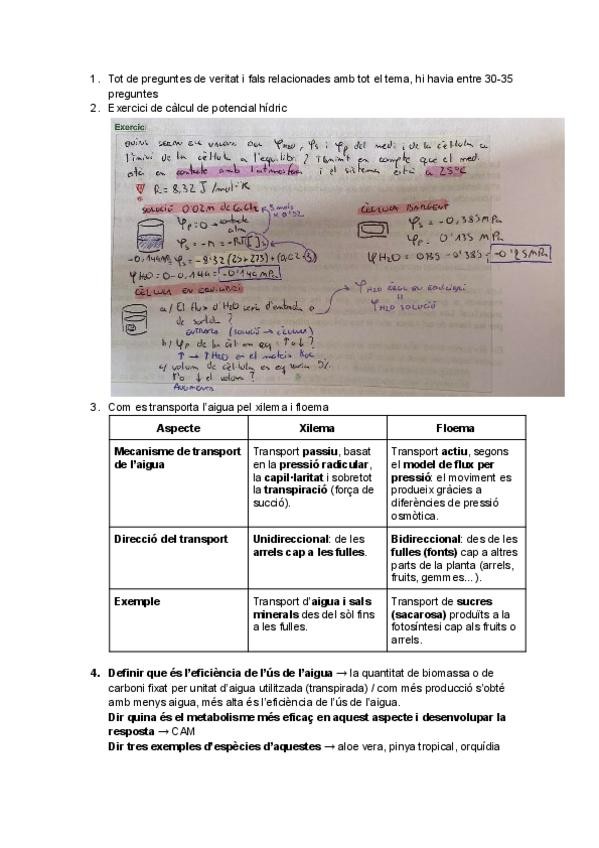 1. Tot de preguntes de veritat i fals relacionades amb tot el tema, hi havia entre 30-35
preguntes
2. Exercici de càlcul de potencial hídric
Exercici
límit de la cèl·lula a l'equilibri? Tenint en compte que el medi
està en contacte amb l'atmosfera i el sistema està a 25ºC
R = 8,32 J/mol·K
SOLUCIÓ 0.02m de CaCl2
3 mols
ψp = 0 → contacte
atm
ψs = -π = -RT[ ]
-0,149MPa = ψs = -8,32 (25+273) + (0,02·3)
ψH2O = 0-0,149 = -0,149 MPa
CÈL·LULA
ψs = -0,385 MPa
ψp = 0'135 MPa
ψH2O = 0'135 - 0'385 = -0'25 MPa
CÈL·LULA EN EQUILIBRI
a/ El flux d'H2O serà d'entrada o
de sortida?
ENTRADA (solució → cèl·lula)
ψH2O CÈL EN EQUILIBRI
=
ψH2O SOLUCIÓ
b/ ψp de la cèl en eq. ↑ o ↓?
↑ → ↑ H2O en el mateix lloc
c/ volum de cèl·lula en eq varia
↑ o ↓ el volum?
AUGMENTA
3. Com es transporta l'aigua pel xilema i floema
Aspecte Xilema Floema
Mecanisme de transport
de l'aigua
Transport passiu, basat
en la pressió radicular,
la capil·laritat i sobretot
la transpiració (força de
succió).
Transport actiu, segons
el model de flux per
pressió: el moviment es
produeix gràcies a
diferències de pressió
osmòtica.
Direcció del transport
Unidireccional: de les
arrels cap a les fulles.
Bidireccional: des de les
fulles (fonts) cap a altres
parts de la planta (arrels,
fruits, gemmes...).
Exemple
Transport d'aigua i sals
minerals des del sòl fins
a les fulles.
Transport de sucres
(sacarosa) produïts a la
fotosíntesi cap als fruits o
arrels.
4. Definir que és l'eficiència de l'ús de l'aigua → la quantitat de biomassa o de
carboni fixat per unitat d'aigua utilitzada (transpirada) / com més producció s'obté
amb menys aigua, més alta és l'eficiència de l'ús de l'aigua.
Dir quina és el metabolisme més eficaç en aquest aspecte i desenvolupar la
resposta → CAM
Dir tres exemples d'espècies d'aquestes → aloe vera, pinya tropical, orquídia